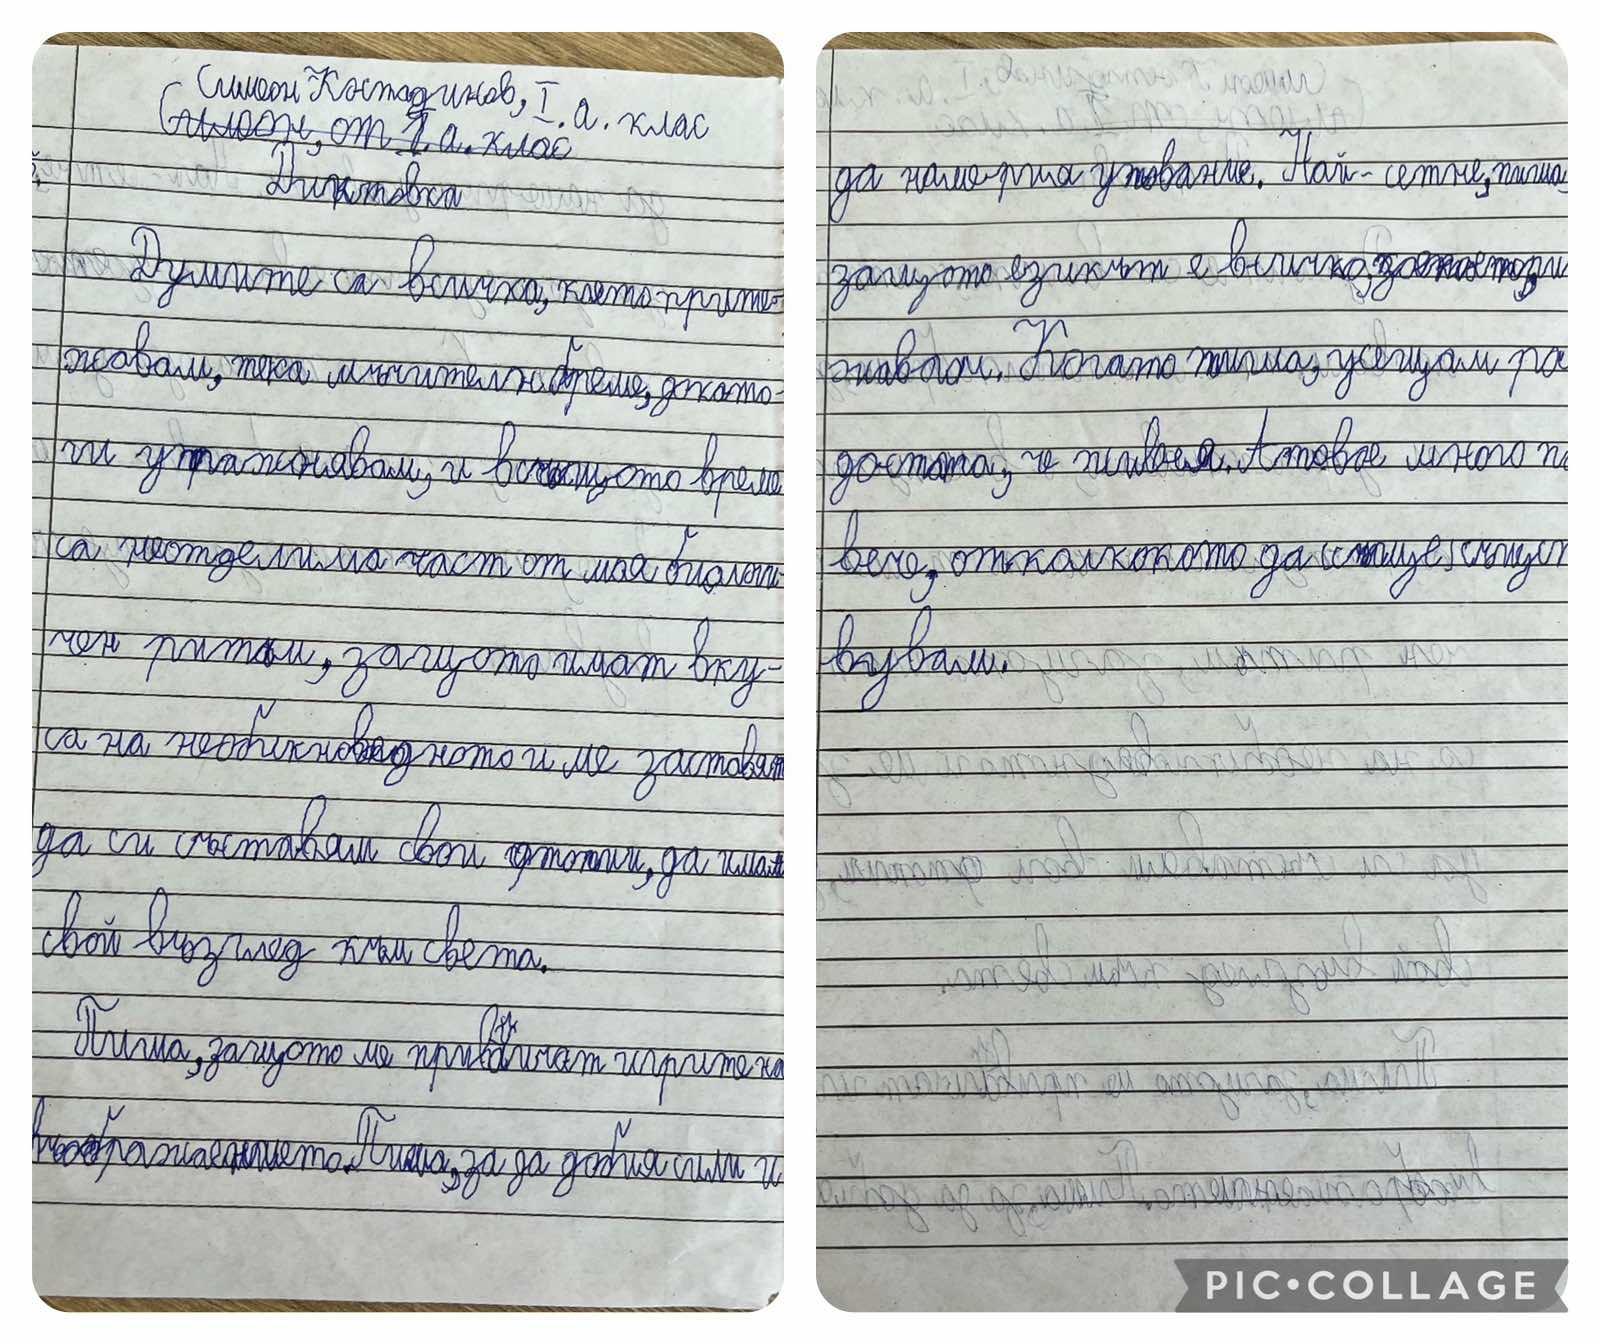 Симеон Костадинов, I. а. клас
Симеон, от I. а. клас
Диктовка
Думите са всичко, което прите-
жавам, тека мъчителн бреме, докато
ги упражнявам, и в същото време
са неотделима част от моя биологи-
чен ритъм, защото имат вку-
са на необикновеното и ме заставят
да си съставям свои утопии, да имам
свой възглед към света.
Пиша, защото ме привличат игрите на
въображението. Пиша, за да добия сили и
да намерша упование. Най-сетне, пиша,
защото езикът е всичко,
жавам. Когато пиша, усещам ра
достта, че живея. А товае много по
вече, отколкокото да съществ
вувам.
PIC•COLLAGE